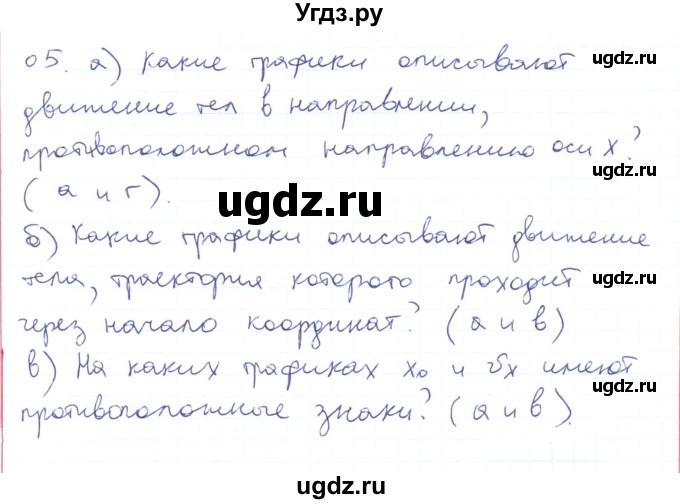 Угдз.ру
05. а) Какие графики описывают
движение тел в направлении,
противоположном направлению оси х?
(а и г).
б) Какие графики описывают движение
тела, траектория которого проходит
через начало координат? (а и в)
в) На каких графиках х₀ и υх имеют
противоположные знаки? (а и в).
ugdz.ru
ugdz.ru
ugdz.ru
ugdz.ru
ugdz.ru
ugdz.ru
ugdz.ru